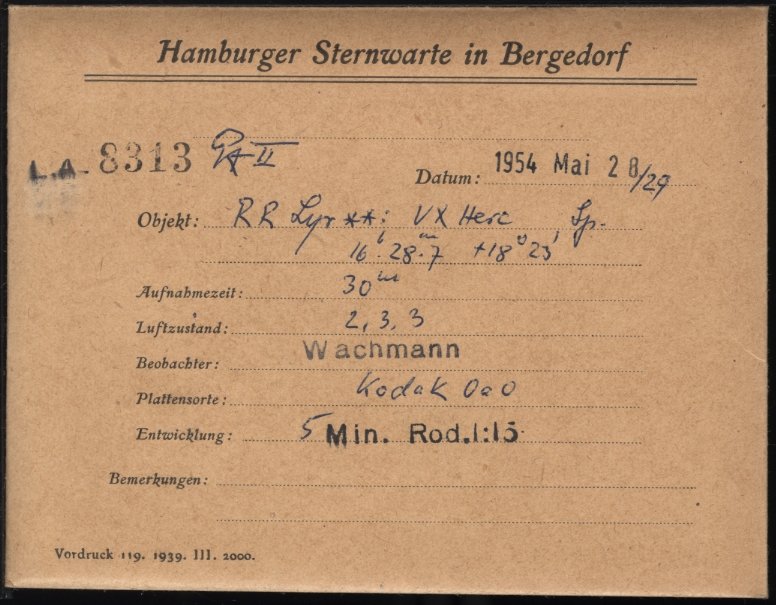 Hamburger Sternwarte in Bergedorf
L.A. 8313 II
Datum: 1954 Mai 28/29
Objekt: RR Lyr **: VX Herc, Sp.
16h 28m.7 +18° 23'
Aufnahmezeit: 30m
Luftzustand: 2, 3, 3
Beobachter: Wachmann
Plattensorte: Kodak OaO
Entwicklung: 5 Min. Rod.1:15
Bemerkungen:
Vordruck 119. 1939. III. 2000.